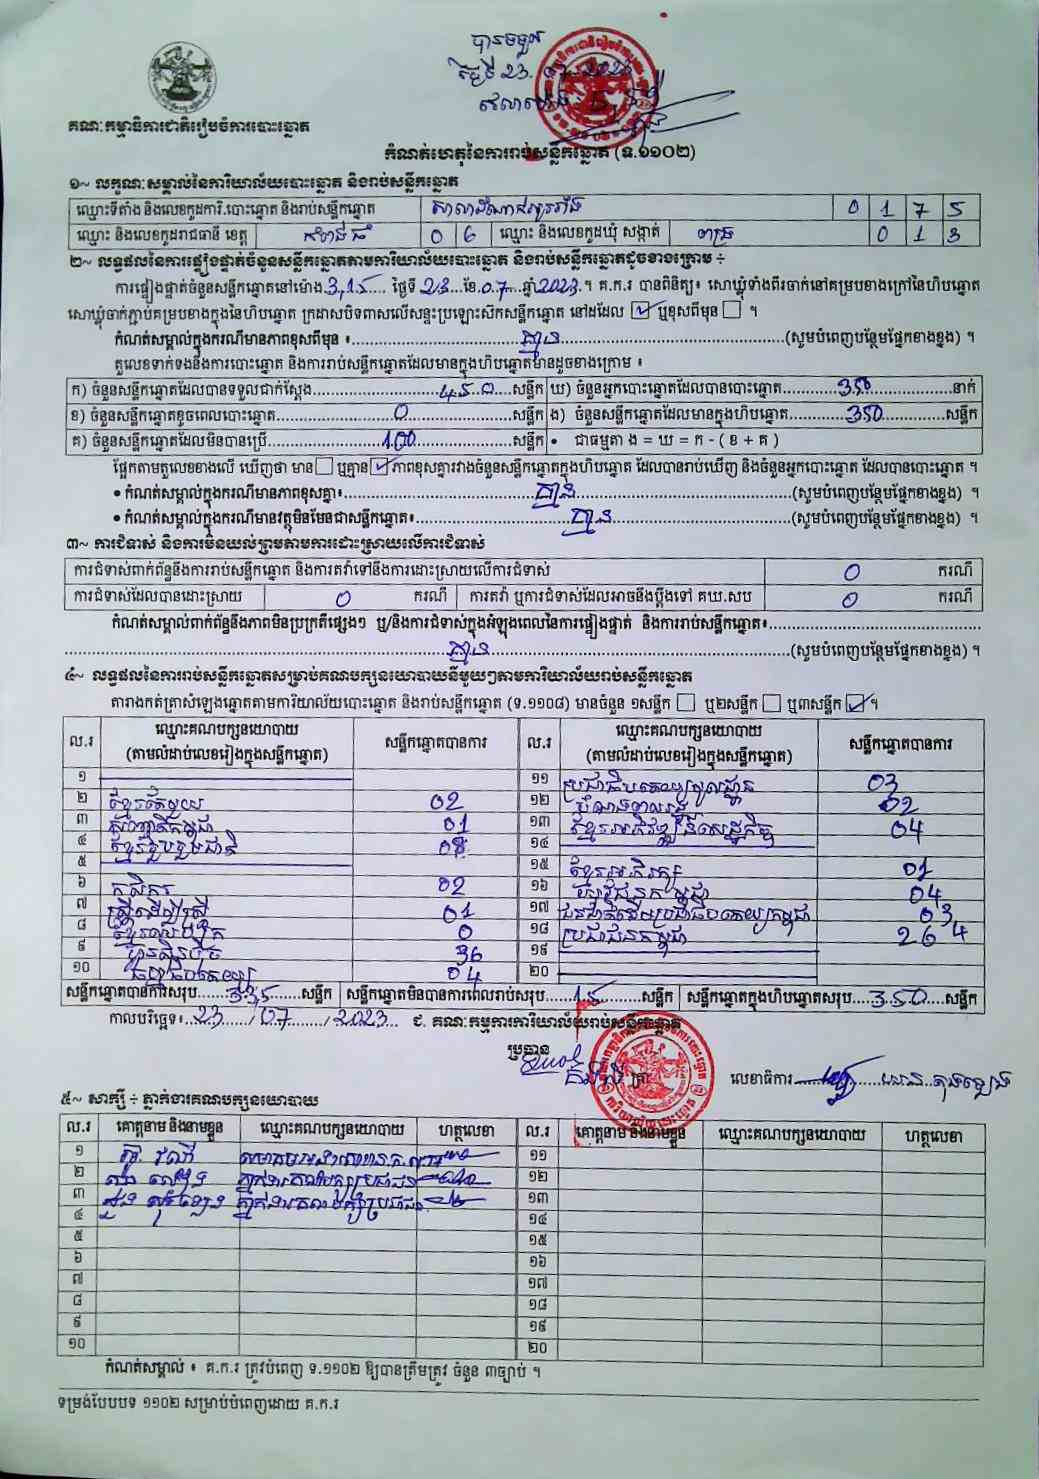 បានទទួល
ថ្ងៃទី 23. 07. 2023
គណៈកម្មាធិការជាតិរៀបចំការបោះឆ្នោត
កំណត់ហេតុនៃការរាប់សន្លឹកឆ្នោត (ទ.១១០២)
១~ លក្ខណៈសម្គាល់នៃការិយាល័យបោះឆ្នោត និងរាប់សន្លឹកឆ្នោត
ឈ្មោះទីតាំង និងលេខកូដការិ.បោះឆ្នោត និងរាប់សន្លឹកឆ្នោត 0 1 7 5
ឈ្មោះ និងលេខកូដរាជធានី ខេត្ត កំពង់ធំ 0 6 ឈ្មោះ និងលេខកូដឃុំ សង្កាត់ 0 1 3
២~ លទ្ធផលនៃការផ្ទៀងផ្ទាត់ចំនួនសន្លឹកឆ្នោតតាមការិយាល័យបោះឆ្នោត និងរាប់សន្លឹកឆ្នោតដូចខាងក្រោម ÷
ការផ្ទៀងផ្ទាត់ចំនួនសន្លឹកឆ្នោតនៅម៉ោង 3,15 ថ្ងៃទី 23 ខែ 07 ឆ្នាំ 2023 ។ គ.ក.រ បានពិនិត្យ៖ សោឃ្លុំទាំងពីរចាក់នៅគម្របខាងក្រៅនៃហិបឆ្នោត
សោឃ្លុំចាក់ភ្ជាប់គម្របខាងក្នុងនៃហិបឆ្នោត ក្រដាសបិទពាសលើសន្ទះប្រឡោះស៊កសន្លឹកឆ្នោត នៅដដែល ☑ ឬខុសពីមុន ☐ ។
កំណត់សម្គាល់ក្នុងករណីមានភាពខុសពីមុន ៖ គ្មាន (សូមបំពេញបន្ថែមផ្នែកខាងខ្នង) ។
តួលេខទាក់ទងនឹងការបោះឆ្នោត និងការរាប់សន្លឹកឆ្នោតដែលមានក្នុងហិបឆ្នោតមានដូចខាងក្រោម ៖
ក) ចំនួនសន្លឹកឆ្នោតដែលបានទទួលជាក់ស្តែង 450 សន្លឹក ឃ) ចំនួនអ្នកបោះឆ្នោតដែលបានបោះឆ្នោត 350 នាក់
ខ) ចំនួនសន្លឹកឆ្នោតខូចពេលបោះឆ្នោត 0 សន្លឹក ង) ចំនួនសន្លឹកឆ្នោតដែលមានក្នុងហិបឆ្នោត 350 សន្លឹក
គ) ចំនួនសន្លឹកឆ្នោតដែលមិនបានប្រើ 100 សន្លឹក • ជាធម្មតា ង = ឃ = ក - ( ខ + គ )
ផ្អែកតាមតួលេខខាងលើ ឃើញថា មាន ☐ ឬគ្មាន ☑ ភាពខុសគ្នារវាងចំនួនសន្លឹកឆ្នោតក្នុងហិបឆ្នោត ដែលបានរាប់ឃើញ និងចំនួនអ្នកបោះឆ្នោត ដែលបានបោះឆ្នោត ។
• កំណត់សម្គាល់ក្នុងករណីមានភាពខុសគ្នា៖ គ្មាន (សូមបំពេញបន្ថែមផ្នែកខាងខ្នង) ។
• កំណត់សម្គាល់ក្នុងករណីមានវត្ថុមិនមែនជាសន្លឹកឆ្នោត៖ គ្មាន (សូមបំពេញបន្ថែមផ្នែកខាងខ្នង) ។
៣~ ការជំទាស់ និងការមិនយល់ព្រមតាមការដោះស្រាយលើការជំទាស់
ការជំទាស់ពាក់ព័ន្ធនឹងការរាប់សន្លឹកឆ្នោត និងការតវ៉ាទៅនឹងការដោះស្រាយលើការជំទាស់ 0 ករណី
ការជំទាស់ដែលបានដោះស្រាយ 0 ករណី ការតវ៉ា ឬការជំទាស់ដែលអាចនឹងប្តឹងទៅ គឃ.សប 0 ករណី
កំណត់សម្គាល់ពាក់ព័ន្ធនឹងភាពមិនប្រក្រតីផ្សេងៗ ឬ/និងការជំទាស់ក្នុងអំឡុងពេលនៃការផ្ទៀងផ្ទាត់ និងការរាប់សន្លឹកឆ្នោត៖
គ្មាន (សូមបំពេញបន្ថែមផ្នែកខាងខ្នង) ។
៤~ លទ្ធផលនៃការរាប់សន្លឹកឆ្នោតសម្រាប់គណបក្សនយោបាយនីមួយៗតាមការិយាល័យរាប់សន្លឹកឆ្នោត
តារាងកត់ត្រាសំឡេងឆ្នោតតាមការិយាល័យបោះឆ្នោត និងរាប់សន្លឹកឆ្នោត (ទ.១១០៨) មានចំនួន ១សន្លឹក ☐ ឬ២សន្លឹក ☐ ឬ៣សន្លឹក ☑ ។
ល.រ ឈ្មោះគណបក្សនយោបាយ (តាមលំដាប់លេខរៀងក្នុងសន្លឹកឆ្នោត) សន្លឹកឆ្នោតបានការ ល.រ ឈ្មោះគណបក្សនយោបាយ (តាមលំដាប់លេខរៀងក្នុងសន្លឹកឆ្នោត) សន្លឹកឆ្នោតបានការ
១ ១១ ប្រជាធិបតេយ្យមូលដ្ឋាន 03
២ ខ្មែរតែមួយ 02 ១២ 02
៣ សញ្ជាតិកម្ពុជា 01 ១៣ ខ្មែរអភិវឌ្ឍន៍សេដ្ឋកិច្ច 04
៤ ខ្មែររួបរួមជាតិ ១៤
៥ ១៥ ខ្មែរអភិរក្ស 01
៦ កសិករ 02 ១៦ យុវជនកម្ពុជា 04
៧ ស្ត្រីដើម្បីស្ត្រី 01 ១៧ ជនជាតិដើមប្រជាធិបតេយ្យកម្ពុជា 03
៨ 0 ១៨ ប្រជាជនកម្ពុជា 264
៩ ហ៊្វុនស៊ិនប៉ិច 36 ១៩
១០ ធម្មាធិបតេយ្យ 04 ២០
សន្លឹកឆ្នោតបានការសរុប 335 សន្លឹក សន្លឹកឆ្នោតមិនបានការពេលរាប់សរុប 15 សន្លឹក សន្លឹកឆ្នោតក្នុងហិបឆ្នោតសរុប 350 សន្លឹក
កាលបរិច្ឆេទ៖ 23 / 07 / 2023 ជ. គណៈកម្មការការិយាល័យរាប់សន្លឹកឆ្នោត
ប្រធាន
លេខាធិការ
៥~ សាក្សី ÷ ភ្នាក់ងារគណបក្សនយោបាយ
ល.រ គោត្តនាម និងនាមខ្លួន ឈ្មោះគណបក្សនយោបាយ ហត្ថលេខា ល.រ គោត្តនាម និងនាមខ្លួន ឈ្មោះគណបក្សនយោបាយ ហត្ថលេខា
១ ១១
២ ១២
៣ ១៣
៤ ១៤
៥ ១៥
៦ ១៦
៧ ១៧
៨ ១៨
៩ ១៩
១០ ២០
កំណត់សម្គាល់ ៖ គ.ក.រ ត្រូវបំពេញ ទ.១១០២ ឱ្យបានត្រឹមត្រូវ ចំនួន ៣ច្បាប់ ។
ទម្រង់បែបបទ ១១០២ សម្រាប់បំពេញដោយ គ.ក.រ